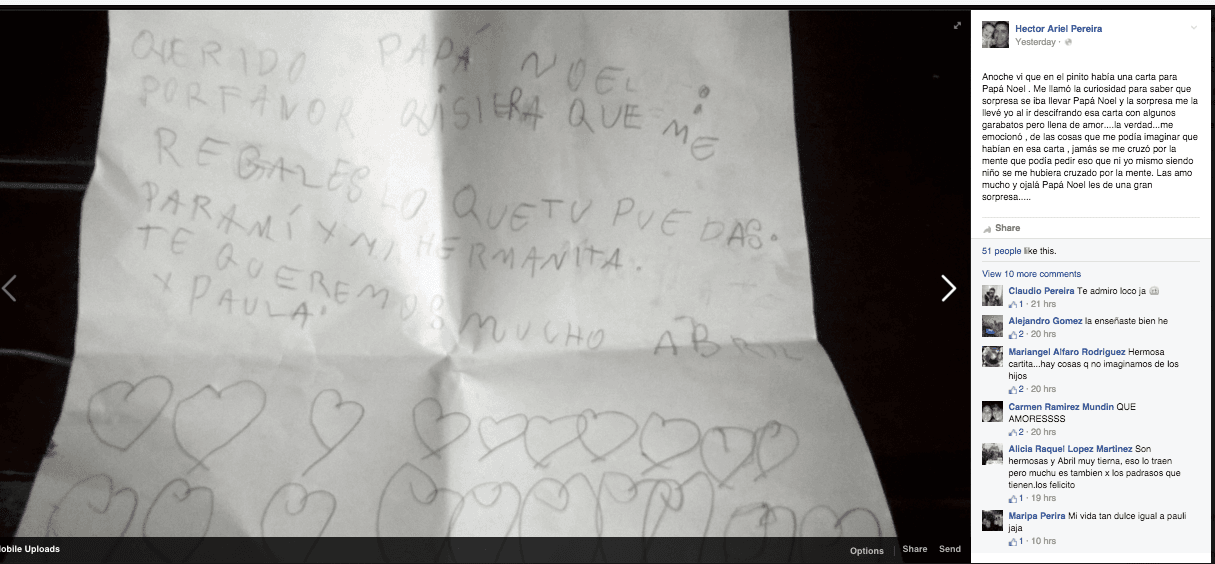 QUERIDO PAPÁ NOEL:
PORFANOR QUISIERA QUE ME
REGALES LO QUETU PUEDAS.
PARAMÍ Y MI HERMANITA.
TE QUEREMOS MUCHO ABRIL
Y PAULA.
obile Uploads
Options
Share
Send
Hector Ariel Pereira
Yesterday ·
Anoche vi que en el pinito había una carta para
Papá Noel . Me llamó la curiosidad para saber que
sorpresa se iba llevar Papá Noel y la sorpresa me la
llevé yo al ir descifrando esa carta con algunos
garabatos pero llena de amor....la verdad...me
emocionó , de las cosas que me podía imaginar que
habían en esa carta , jamás se me cruzó por la
mente que podía pedir eso que ni yo mismo siendo
niño se me hubiera cruzado por la mente. Las amo
mucho y ojalá Papá Noel les de una gran
sorpresa.....
Share
51 people like this.
View 10 more comments
Claudio Pereira Te admiro loco ja
1 · 21 hrs
Alejandro Gomez la enseñaste bien he
2 · 20 hrs
Mariangel Alfaro Rodriguez Hermosa
cartita...hay cosas q no imaginamos de los
hijos
2 · 20 hrs
Carmen Ramirez Mundin QUE
AMORESSSS
2 · 20 hrs
Alicia Raquel Lopez Martinez Son
hermosas y Abril muy tierna, eso lo traen
pero muchu es tambien x los padrasos que
tienen.los felicito
1 · 19 hrs
Maripa Perira Mi vida tan dulce igual a pauli
jaja
1 · 10 hrs